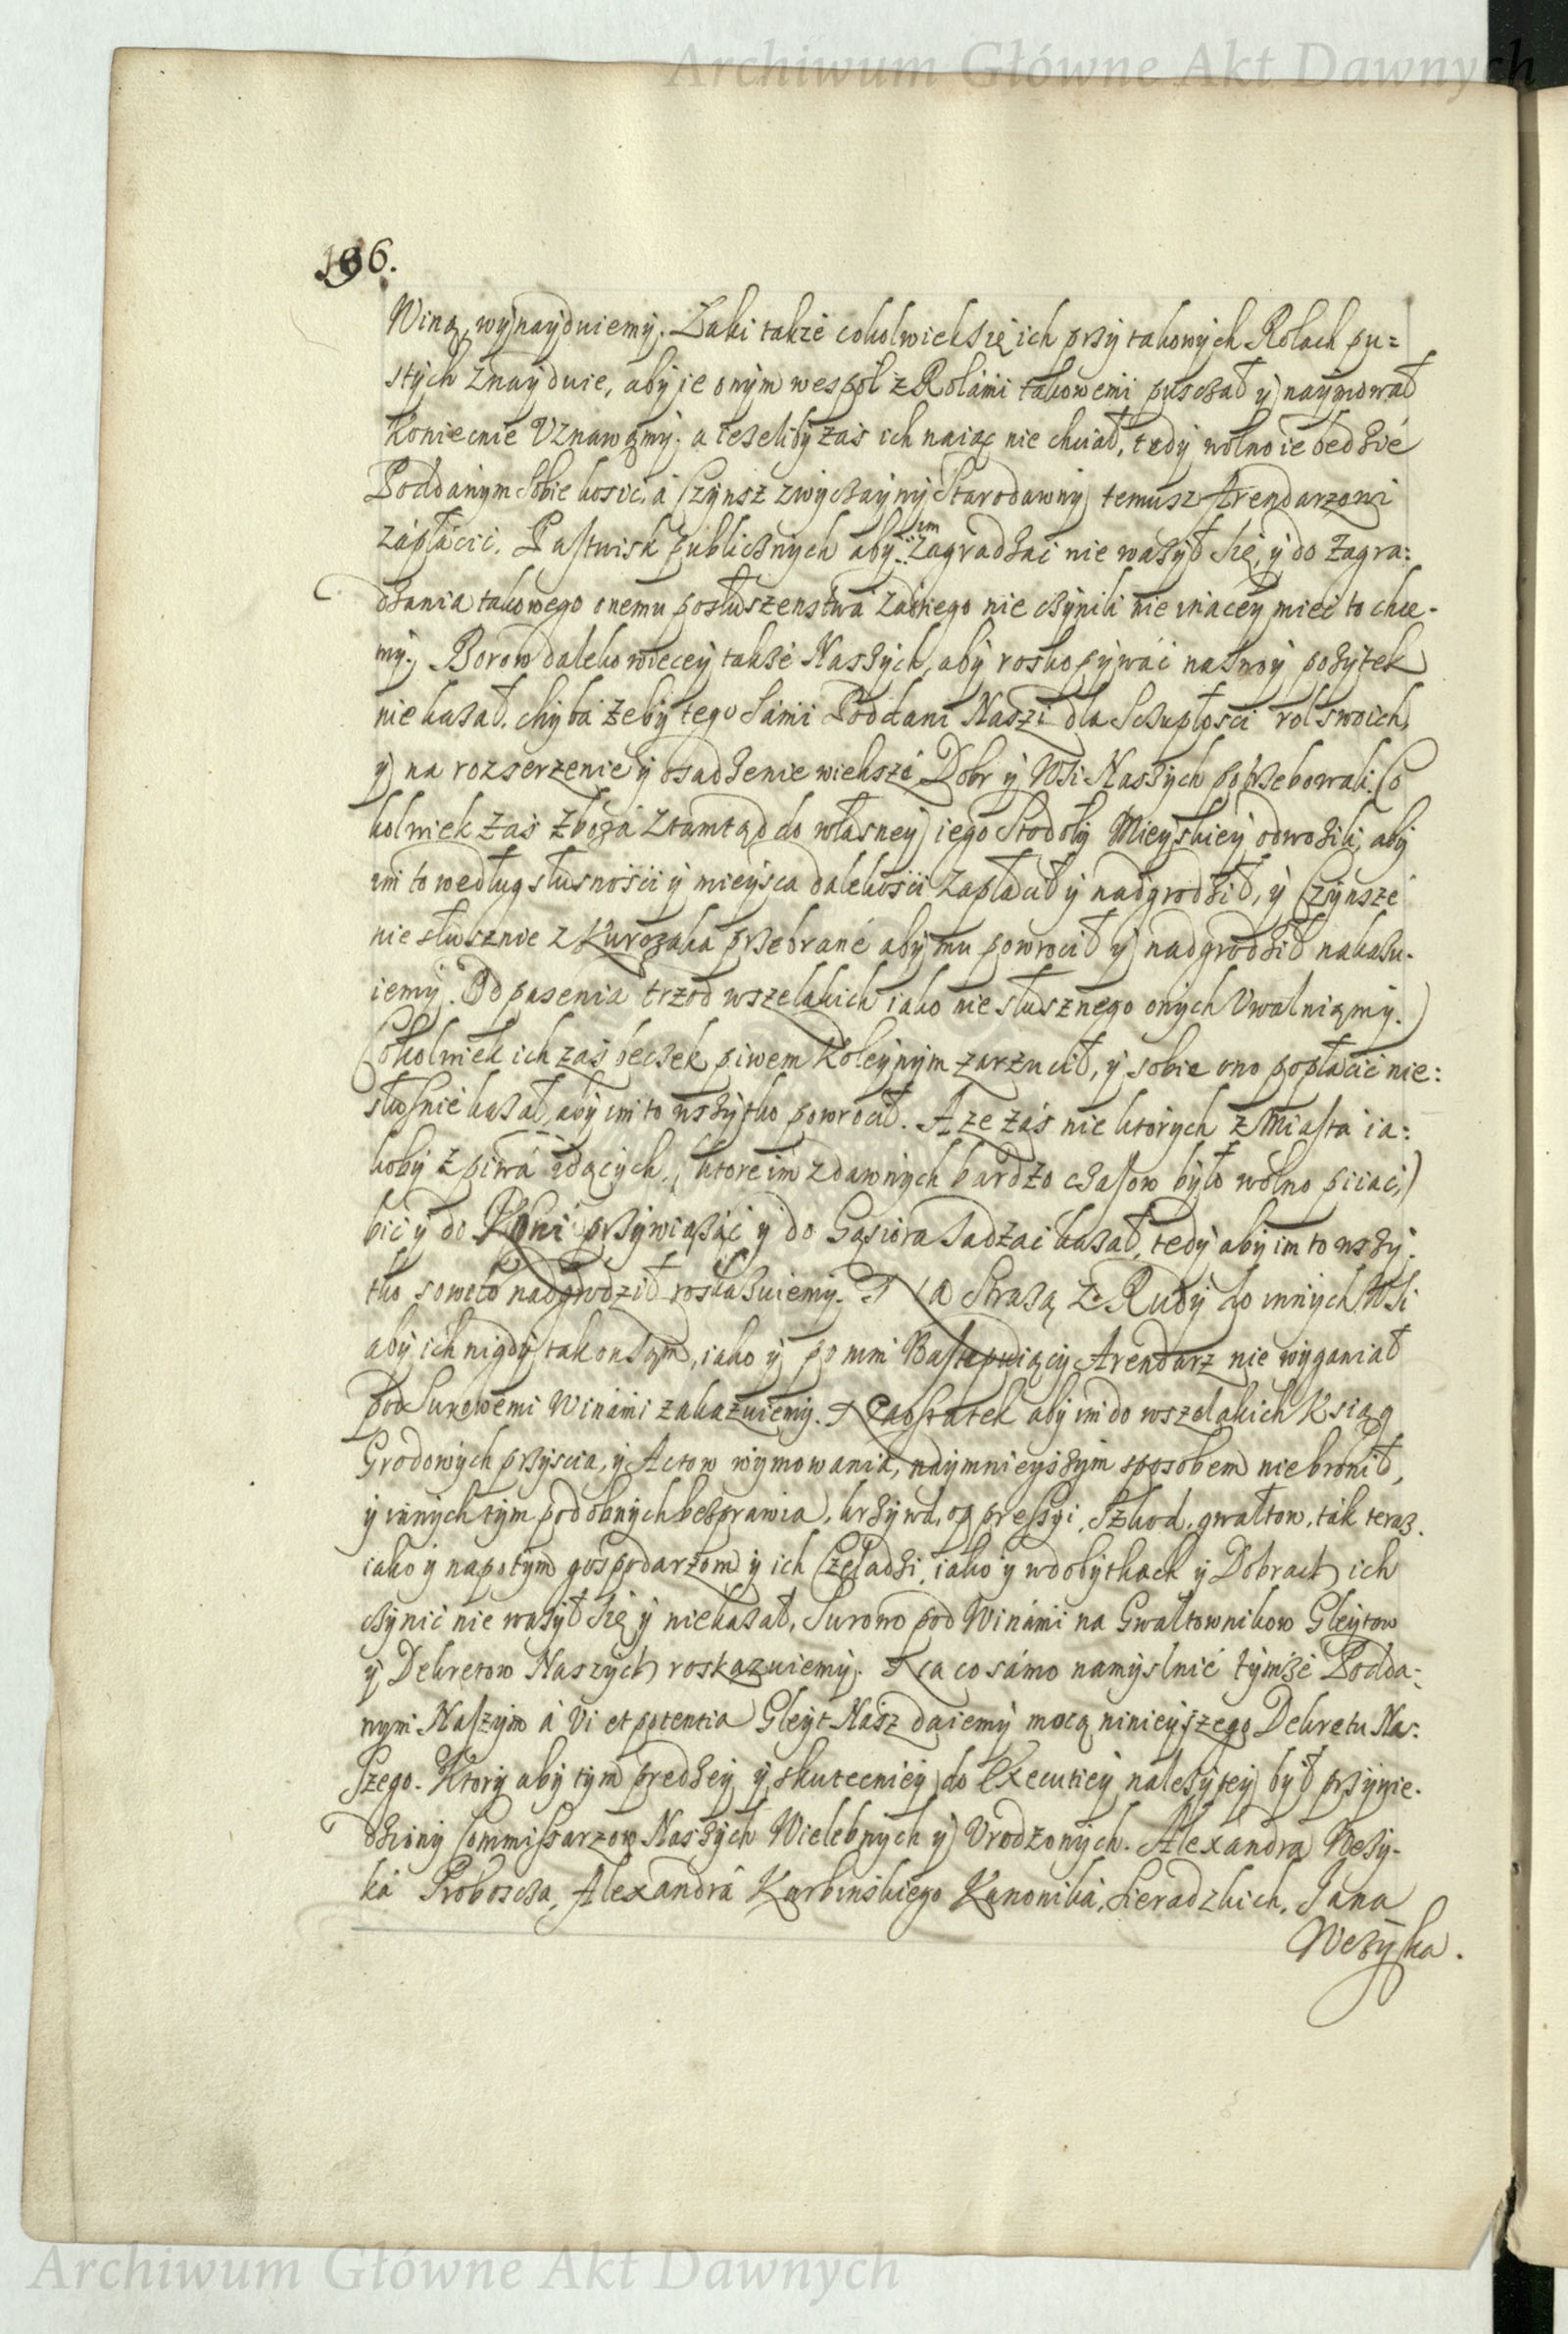 Archiwum Główne Akt Dawnych
196.
Winą wynayduiemy. Łaki także cokolwiek się ich przy takowych Rolach pu=
stych znayduie, aby ie onym wespoł z Rolámi takowemi pusczał y naymował
koniecnie Vznawamy. a iezeliby zaś ich naiąc nie chciał, tedy wolno ie będzie
Poddánym sobie kosić, á Czynsz zwyczayny Starodawny temusz Arendarzowi
zápłácić. Pastwisk publicznych aby im Zagradzac nie ważył się, y do Zagra:
dzania takowego onemu posłuszenstwá żadnego nie czynili nie inaczey mieć to chce-
my. Borow daleko wiecey także Naszych, aby roskopywáć na swoy pożytek
nie kazał, chybá żeby tego Sámi Poddani Naszi dla Sczupłości rol swoich,
y na rozserzenie y osadzenie większe Dobr y Wsi Naszych potrzebowali. Co
kolwiek zaś zbożá ztamtąd do własney iego Stodoły Mieyskiey odwozili, aby
im to według słusności y mieysca dalekości zapłacił y nadgrodził, y Czynsze
niesłusznie z Kurozaka przebrané aby mu powrocił y nadgrodził nakazu-
iemy. Od pasenia trzod wszelakich iako niesłusznego onych Vwalniamy.
Cokolwiek ich zaś beczek piwem koleynym zarzucił, y sobie ono popłacić nie:
słusnie kazał, aby im to wszytko powrocił. A ze záś niektorych z Miasta ia:
koby z piwá idących, (ktore im z dawnych bardzo czasow było wolno piiać,)
bić y do Koni przywiązać y do Gąsiora sadzać kazał, tedy aby im to wszy:
tko sowito nadgrodził roskazuiemy. Na Strażą z Rudy do innych Wsi
aby ich nigdy tak on sąm, iako y po nim Nastepuiący Arendarz nie wyganiał
pod Surowemi Winámi zakazuiemy. Naostatek aby im do wszelakich Ksiąg
Grodowych przyscia, y Actow wymowania, naymnieyszym sposobem nie bronił,
y innych tym podobnych bezprawia, krzywd, oppressyi, Szkod, gwałtow, ták teraz.
iako y napotym gospodarzom y ich Czeladzi, iako y w dobytkach y Dobrach ich
czynić nie ważył się y nie kazał, Surowo pod Winámi na Gwałtownikow Gleytow
y Dekretow Naszych roskazuiemy. Na co sámo namyslnie tymże Podda-
nym Naszym á Vi et potentia Gleyt Nász daiemy mocą ninieyszego Dekretu Na:
szego. Ktory aby tym prędzey y skuteczniey do Executiey należytey był przywie-
dziony Commissarzow Naszych Wielebnych y Vrodzonych. Alexandra Węży-
ká Proboscza, Alexandrá Karbinskiego Kanoniká, Sieradzkich, Jana
Wężyka.
Archiwum Główne Akt Dawnych